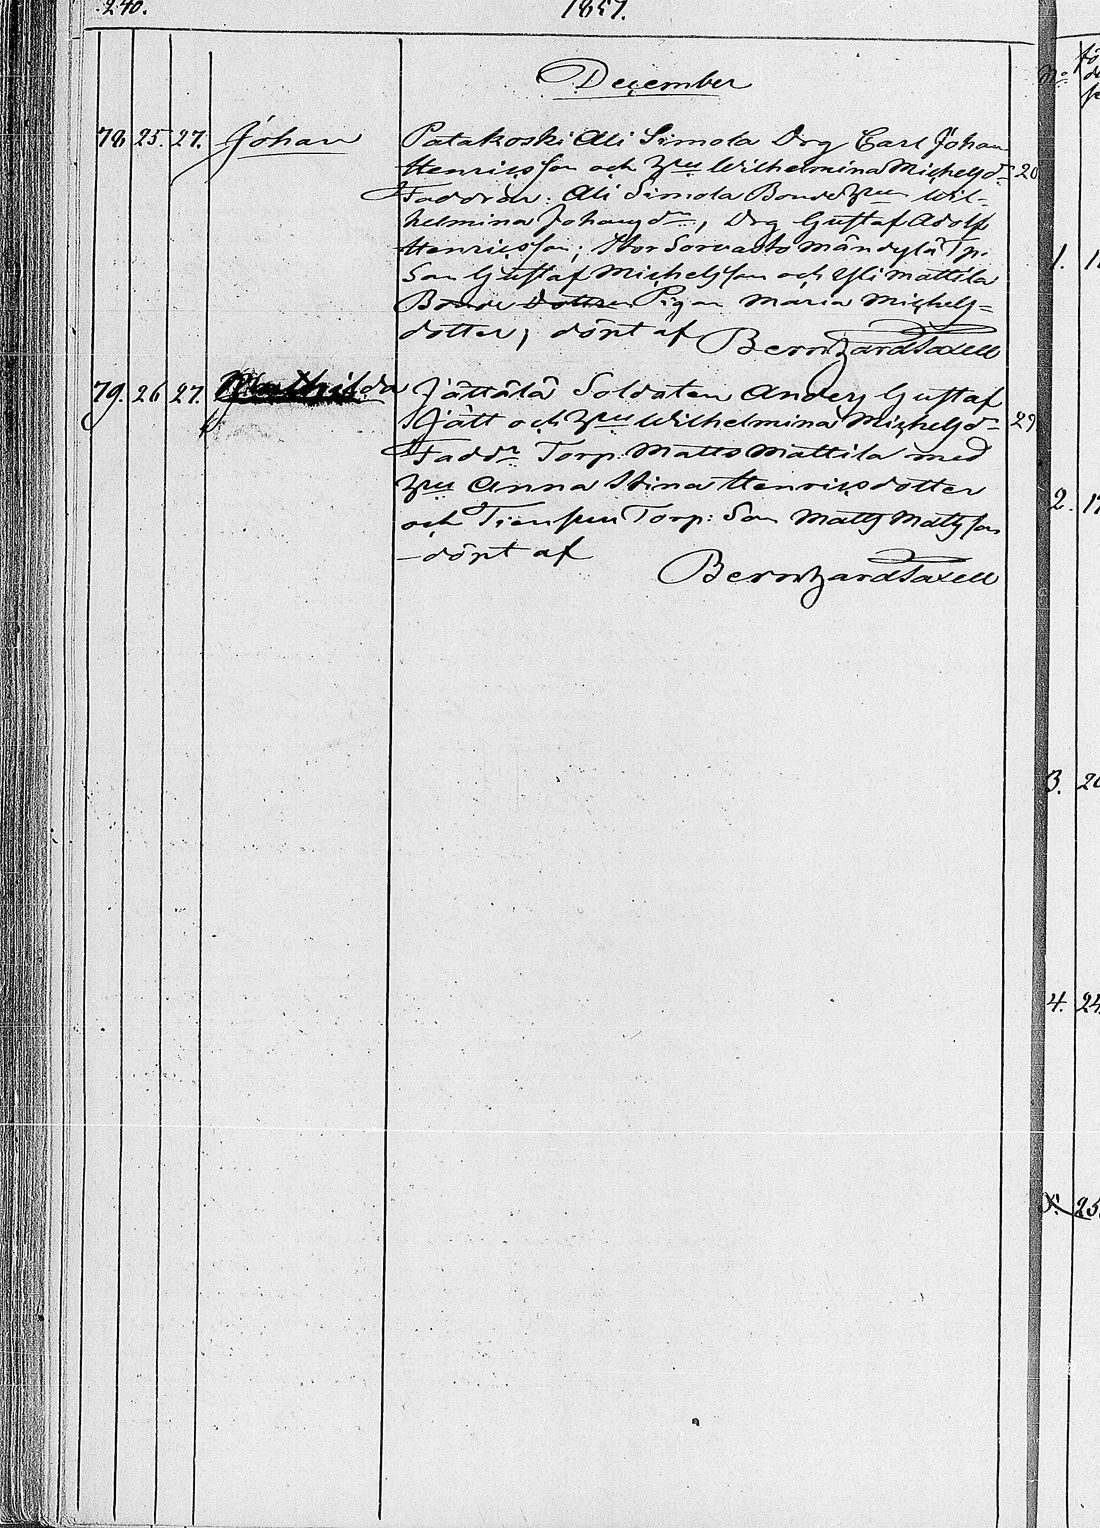 240.
1857.
December
78 25. 27. Johan
Patakoski Ali Simola Drg Carl Johan
Henricsson och Hru Wilhelmina Michelsdr 20
Faddrar: Ali Simola Bonde Hru Wil-
helmina Johansdr, Drg Gustaf Adolf
Henricsson; Stor Sorvasto Mändylä Tp.
Son Gustaf Michelsson och Yli Mattila
Bonde Dottren Pigan Maria Michels-
dotter, döpt af Bernhard Saxell
79. 26 27. Mathilda
Jättälä Soldaten Anders Gustaf
Jätt och Hru Wilhelmina Michelsdr 29
Faddr Torp. Matts Mattila med
Hru Anna Stina Henricsdotter
och Torp: Son Matts Mattsson
döpt af
Bernhard Saxell
No
1.
2. 17
3. 20
4. 24.
5. 25.